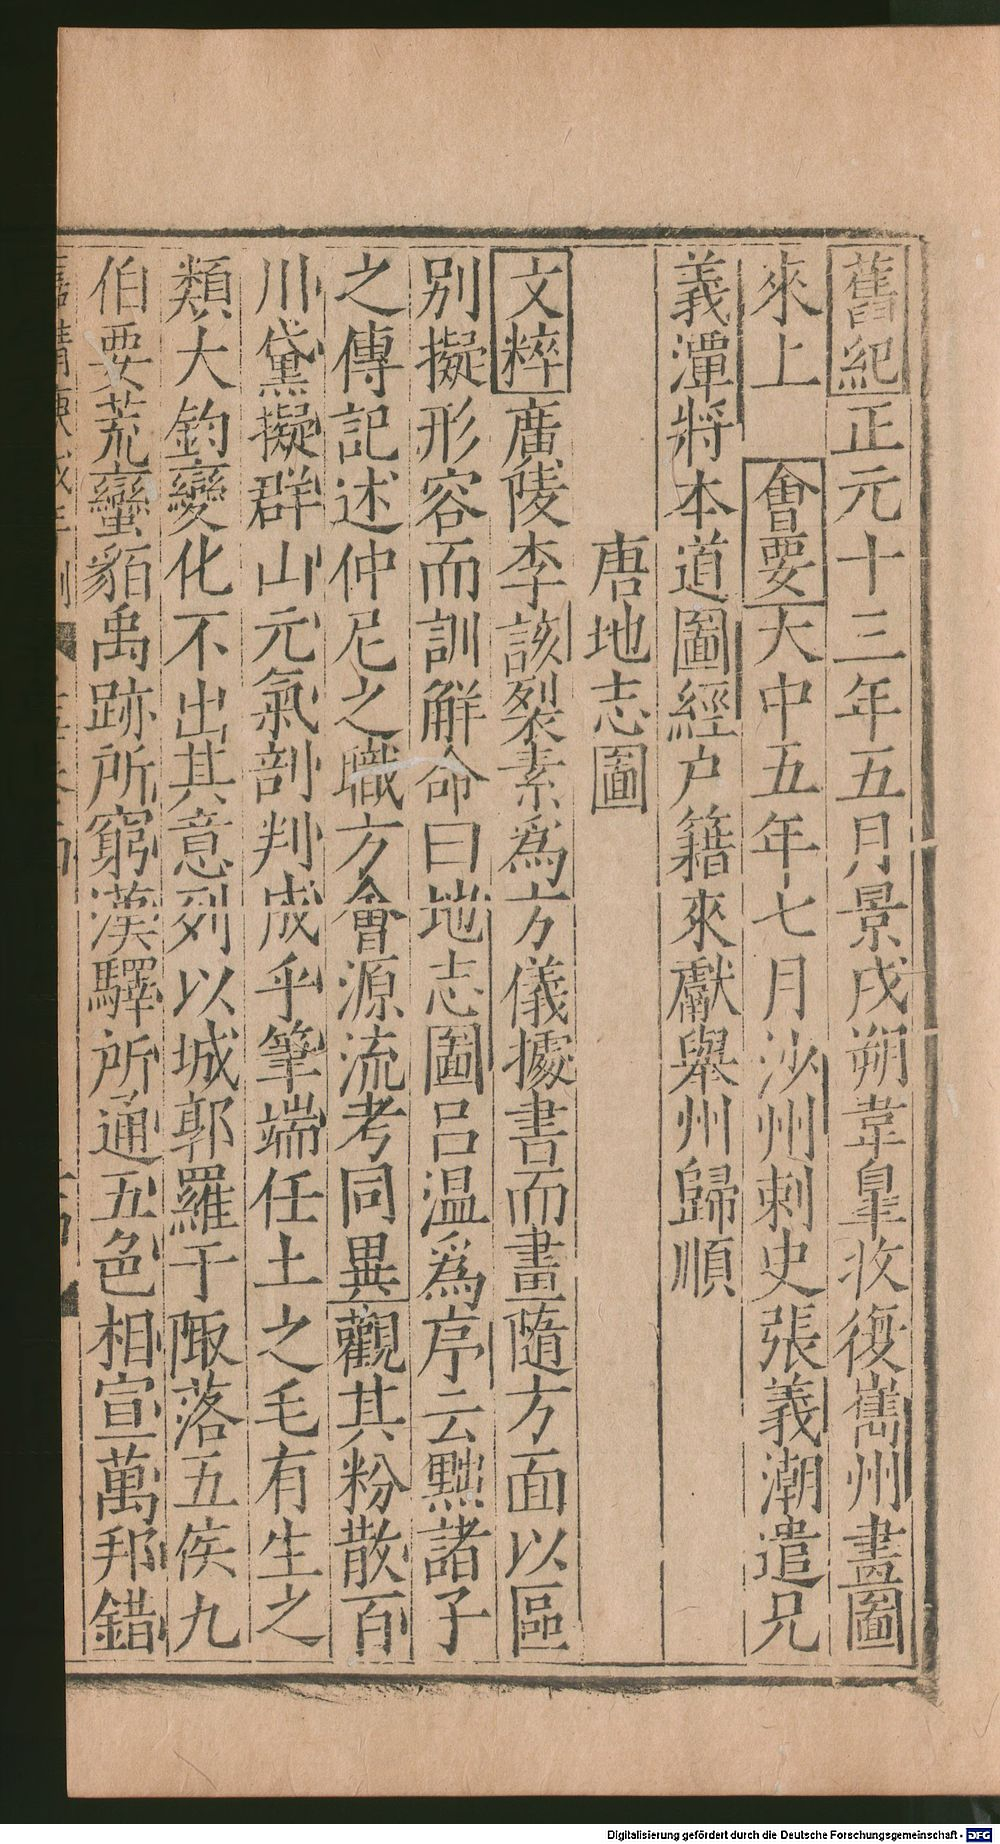 舊紀正元十三年五月景戌朔韋臯收復巂州畫圖
來上　會要大中五年七月沙州刺史張義潮遣兄
義潭將本道圖經户籍來獻舉州歸順
唐地志圖
文粹廣陵李該裂素爲方儀據書而畫隨方面以區
別擬形容而訓解命曰地志圖吕温爲序云黜諸子
之傳記述仲尼之職方會源流考同異觀其粉散百
川黛擬群山元氣剖判成乎筆端任土之毛有生之
類大鈞變化不出其意列以城郭羅于陬落五侯九
伯要荒蠻貊禹跡所窮漢驛所通五色相宣萬邦錯
Digitalisierung gefördert durch die Deutsche Forschungsgemeinschaft - DFG